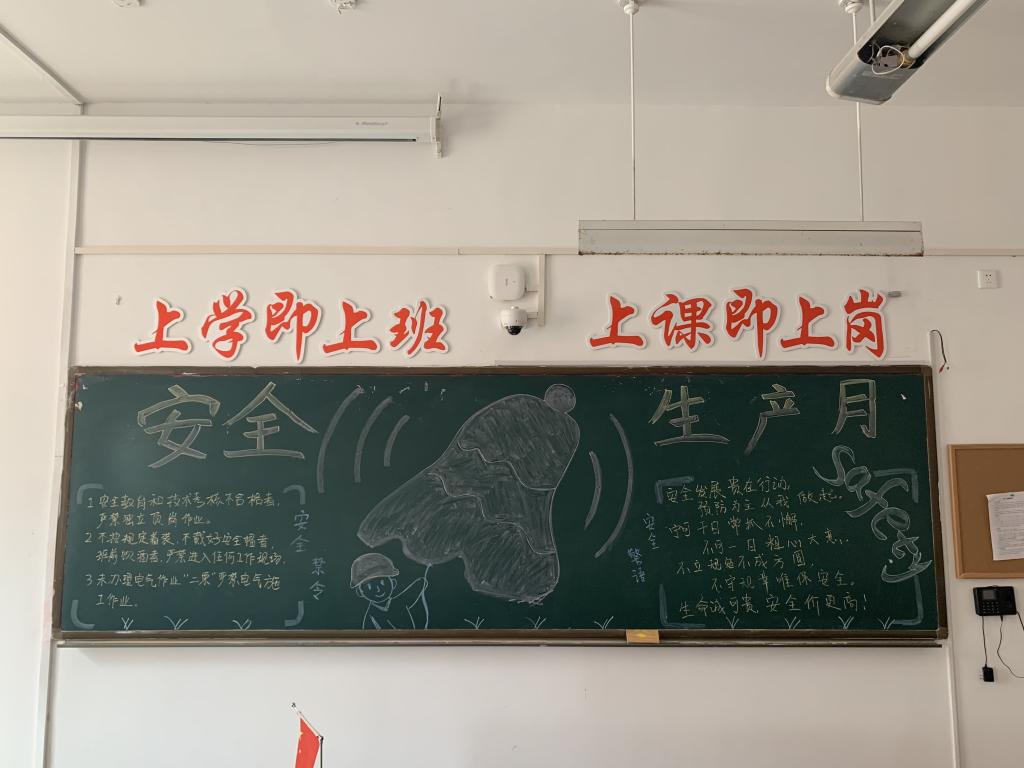 上学即上班
上课即上岗
安全
生产月
safety
1 安全教育和技术考核不合格者,
严禁独立顶岗作业。
2 不按规定着装、不戴好安全帽者,
严禁进入任何工作现场.
3 未办理电气作业“二票”严禁电气施
工作业。
安全
禁令
安全
警语
安全发展 贵在行动,
预防为主 从我做起.
宁可千日 不懈,
不可一日粗心大意.
不立规矩不成方圆,
不守规章难保安全。
生命诚可贵 安全价更高!